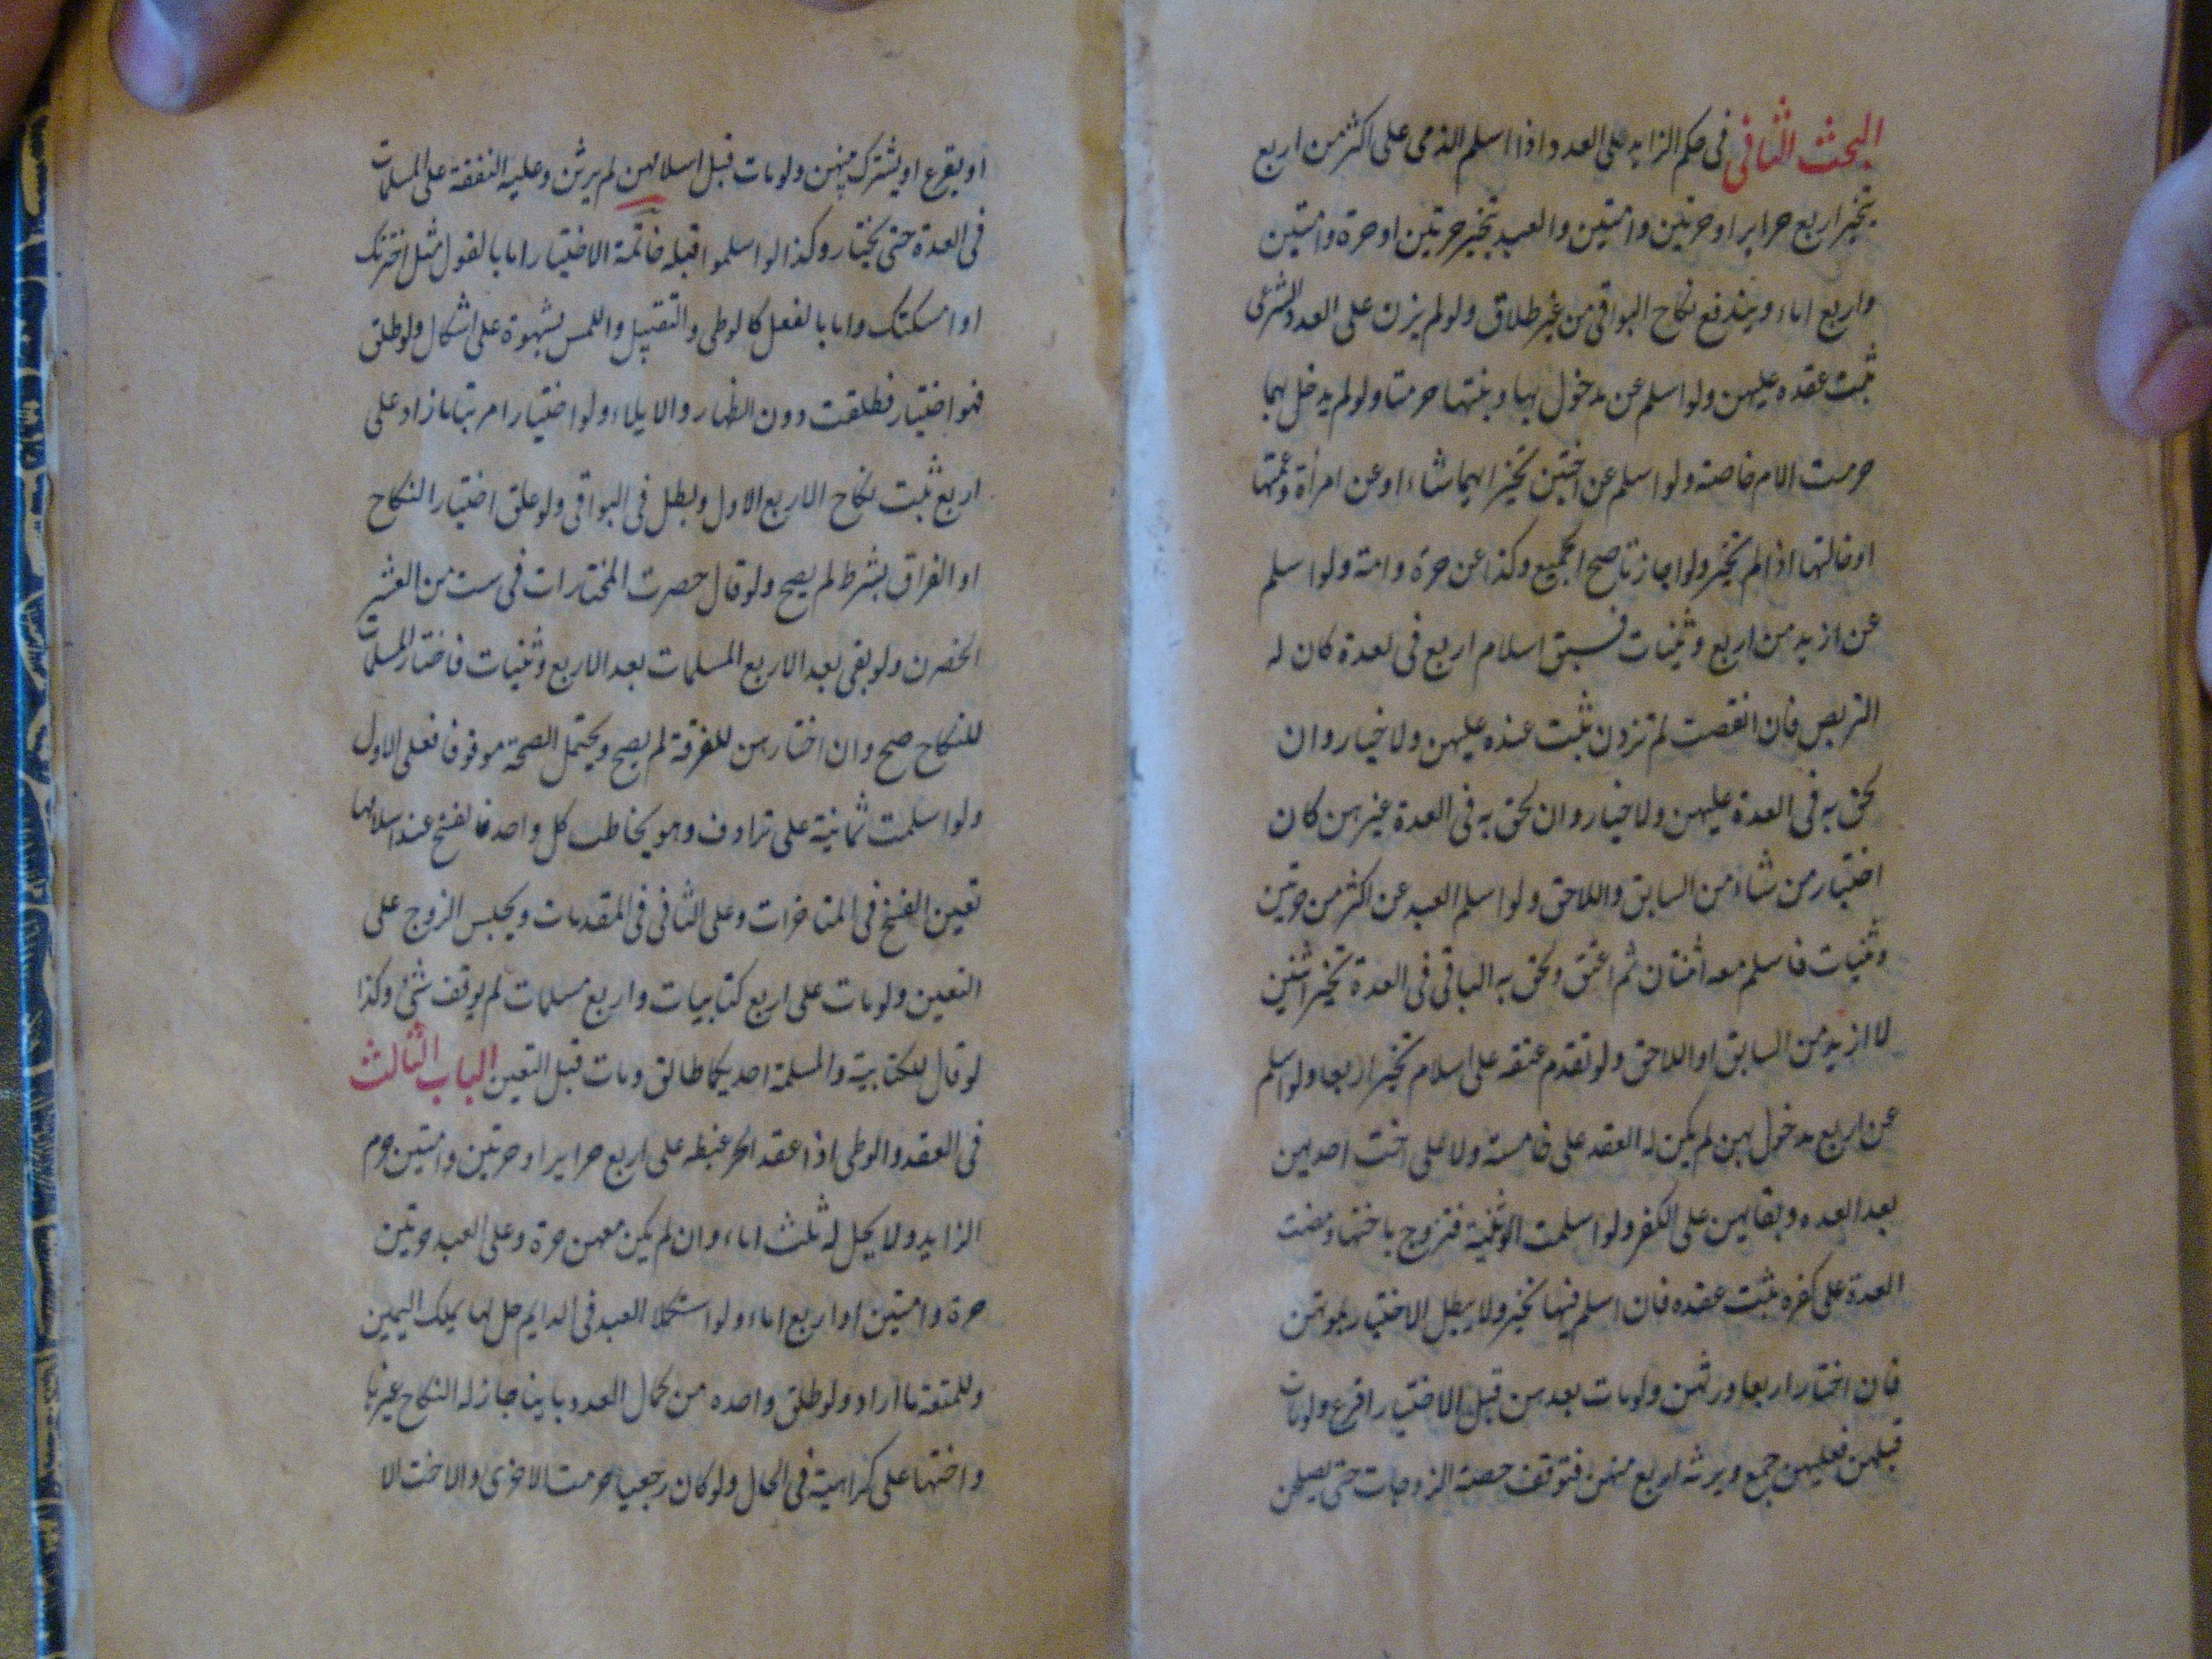 البحث الثانى فى حكم الزايد على العدد اذا اسلم الذمى على اكثر من اربع
تخير اربع حراير او حرتين وامتين والعبد تخير حرتين او حرة وامتين
واربع اماء ويندفع نكاح البواقى من غير طلاق ولو لم يزدن على العدد الشرعى
ثبت عقده عليهن ولو اسلم عن مدخول بها وبنتها حرمتا ولو لم يدخل بهما
حرمت الام خاصة ولو اسلم عن اختين تخير ايهما شاء او عن امرأة وعمتها
او خالتها اذا لم تخير ولو اجازتا صح الجميع وكذا عن حرة وامة ولو اسلم
عن ازيد من اربع وثنيات فسبق اسلام اربع فى لعدة كان له
التربص فان انقصت لم تزدن ثبت عنده عليهن ولا خيار وان
لحق به فى العدة عليهن ولا خيار وان لحق به فى العدة غيرهن كان
اختيار من شاء من السابق واللاحق ولو اسلم العبد عن اكثر من حرتين
وثنيات فاسلم معه اثنتان ثم اعتق ولحق به الباقى فى العدة تخير اثنين
لا ازيد من السابق او اللاحق ولو تقدم عتقه على اسلام تخير اربعا ولو اسلم
عن اربع مدخول بهن لم يكن له العقد على خامسة ولا على اخت احديهن
بعد العده وبقايهن على الكفر ولو اسلمت الوثنية فتزوج باختها ومضت
العدة على كفره ثبت عقده فان اسلم فيها تخير ولا يبطل الاختيار بموتهن
فان اختار اربعا ورثهن ولو مات بعدهن قبل الاختيار اقرع ولو مات
قبلهن فعليهن جمع ويرثه اربع منهن فتوقف حصة الزوجات حتى يصلحن
او يقرع او يشترك منهن ولو مات قبل اسلامهن لم يرثن وعليه النفقة على المسلمات
فى العدة حتى يختار وكذا لو اسلموا قبله خاتمة الاختيار اما بالقول مثل اخترتك
او امسكتك واما بالفعل كالوطى والتقبيل واللمس بشهوة على اشكال ولو طلق
فهو اختيار فطلقت دون الظهار والايلاء ولو اختيار امر بتا ما زاد على
اربع ثبت نكاح الاربع الاول وبطل فى البواقى ولو علق اختيار النكاح
او الفراق بشرط لم يصح ولو قال حصرت المختارات فى ست من العشر
انحصرن ولو بقى بعد الاربع المسلمات بعد الاربع وثنيات فاختار المسلمات
للنكاح صح وان اختارهن للفرقة لم يصح ويحتمل الصحة موقوفا فعلى الاول
ولو اسلمت ثمانية على ترادف وهو يخاطب كل واحدة بالفسخ عند اسلامها
تعين الفسخ فى المتاخرات وعلى الثانى فى المقدمات ويحبس الزوج على
التعين ولو مات على اربع كتابيات واربع مسلمات لم يوقف شئ وكذا
لو قال للكتابية والمسلمة احديكما طالق ومات قبل التعين الباب الثالث
فى العقد والوطى اذا عقد الحر غبطه على اربع حراير او حرتين وامتين حرم
الزايد ولا يحل له ثلث اماء وان لم يكن معهن حرة وعلى العبد حرتين
حرة وامتين او اربع اماء ولو استكملا العدد فى الدايم حل لهما بملك اليمين
وللمتعة ما اراد ولو طلق واحده من كمال العدد باينا جاز له النكاح غيرها
واختها على كراهية فى الحال ولو كان رجعيا حرمت الاخرى والاخت الا